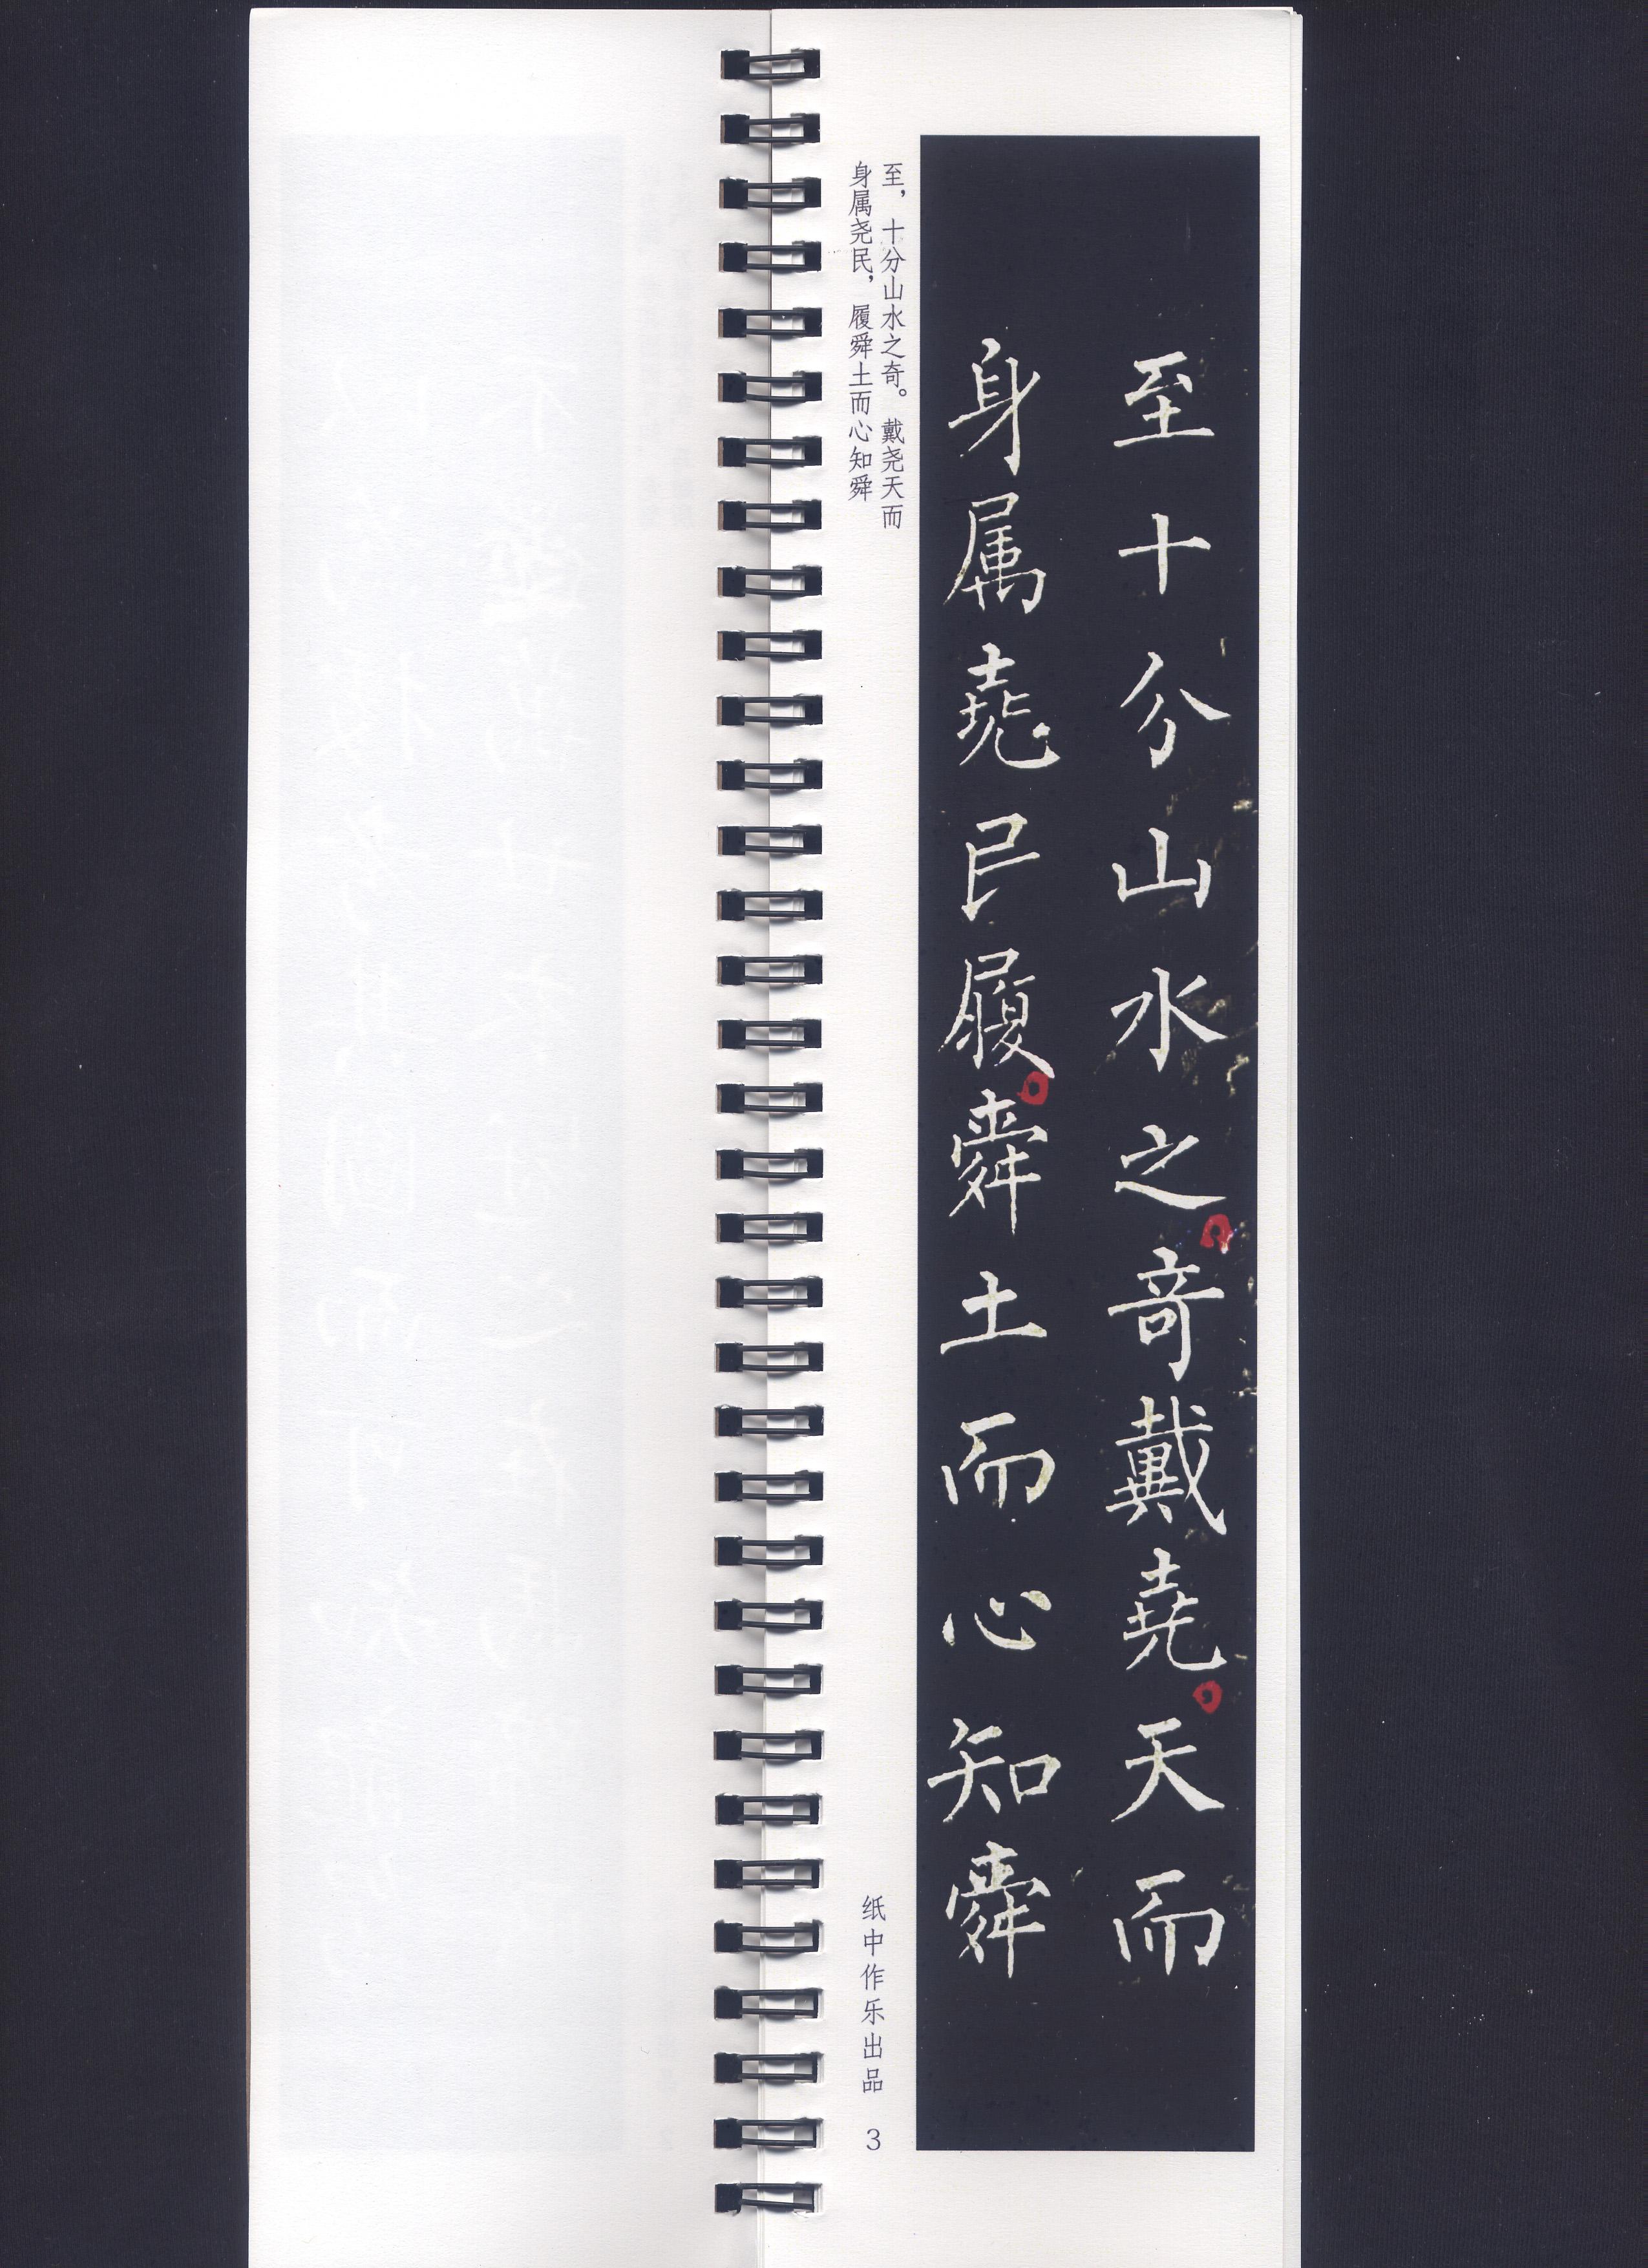 至十分山水之奇戴堯天而
身属堯民履舜土而心知舜
至，十分山水之奇。戴尧天而
身属尧民，履舜土而心知舜
纸中作乐出品
3